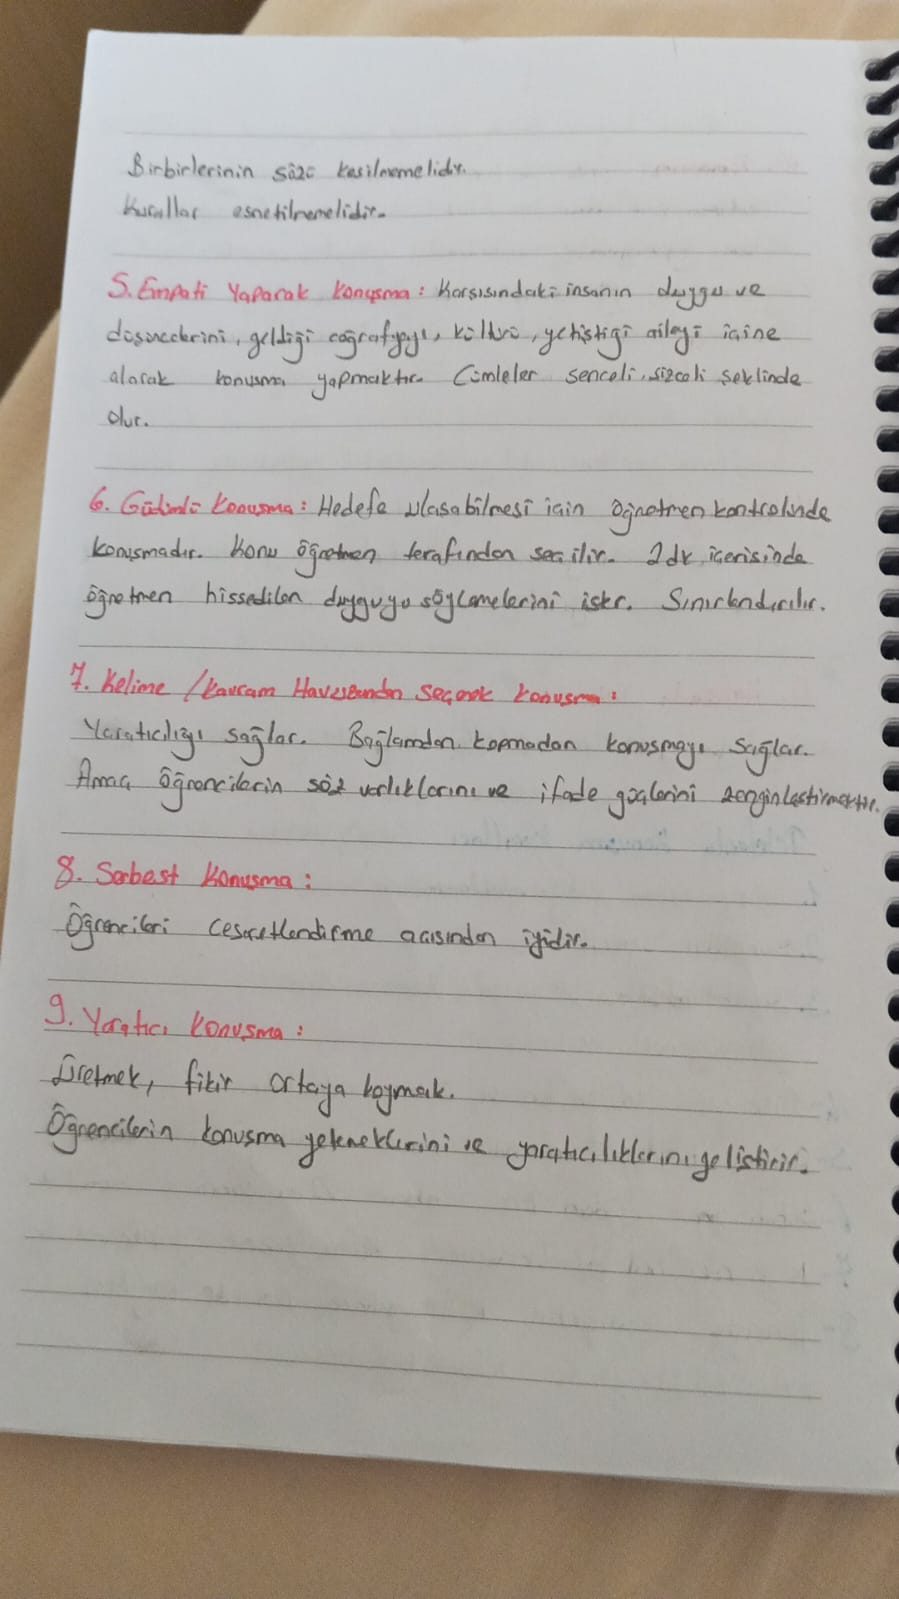 Birbirlerinin sözü kesilmemelidir.
Kurallar esnetilmemelidir.
5. Empati Yaparak Konuşma: Karşısındaki insanın duygu ve
düşüncelerini, geldiği coğrafyayı, kültürü, yetiştiği aileyi içine
alarak konuşma yapmaktır. Cümleler senceli, sizceli şeklinde
olur.
6. Güdümlü Konuşma: Hedefe ulaşabilmesi için öğretmen kontrolünde
konuşmadır. Konu öğretmen tarafından seçilir. 2dk içerisinde
öğretmen hissedilen duyguyu söylemelerini ister. Sınırlandırılır.
7. Kelime /Kavram Havuzundan Seçerek Konuşma:
Yaratıcılığı sağlar. Bağlamdan kopmadan konuşmayı sağlar.
Amaç öğrencilerin söz varlıklarını ve ifade güçlerini zenginleştirmektir.
8. Serbest Konuşma:
Öğrencileri cesaretlendirme açısından iyidir.
9. Yaratıcı Konuşma:
Üretmek, fikir ortaya koymak.
Öğrencilerin konuşma yeteneklerini ve yaratıcılıklarını geliştirir.